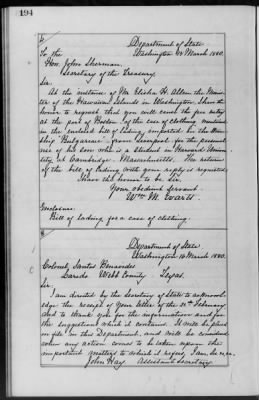 194
Department of State
Washington March 1880.
To the
Hon. John Sherman.
Secretary of the Treasury.
Sir.
At the instance of Mr. Elisha H. Allen the Minis-
ter of the Hawaiian Islands in Washington, I have the
honor to request that you will cause the free entry
at the port of Boston, of the case of clothing mentioned
in the enclosed bill of lading imported by the Steam-
ship "Bulgarian" from Liverpool for the personal
use of his son who is a student in Harvard Univer-
sity, at Cambridge, Massachusetts. The return
of the bill of lading with your reply is requested.
I have the honor to be Sir.
Your obedient servant.
Wm. M. Evarts.
Enclosure:
Bill of lading for a case of clothing.
Department of State
Washington March 1880.
Colonel Santos Benavides
Laredo Webb County Texas.
Sir.
I am directed by the Secretary of State to acknowl-
edge the receipt of your letter of the February
and to thank you for the information and for
the suggestion which it contains. It will be placed
on file in this Department, and will be considered
when any action comes to be taken upon the
important matters to which it refers. I am &c. &c.
John Hay Assistant Secretary.